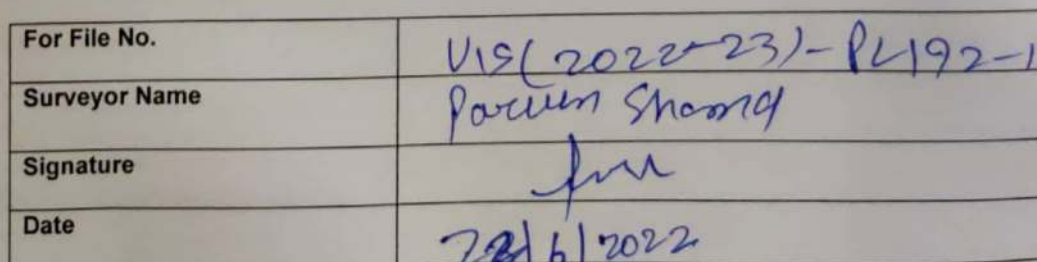 For File No. VIS(2022-23)-PL192-1
Surveyor Name Parveen Sharma
Signature
Date /6/2022